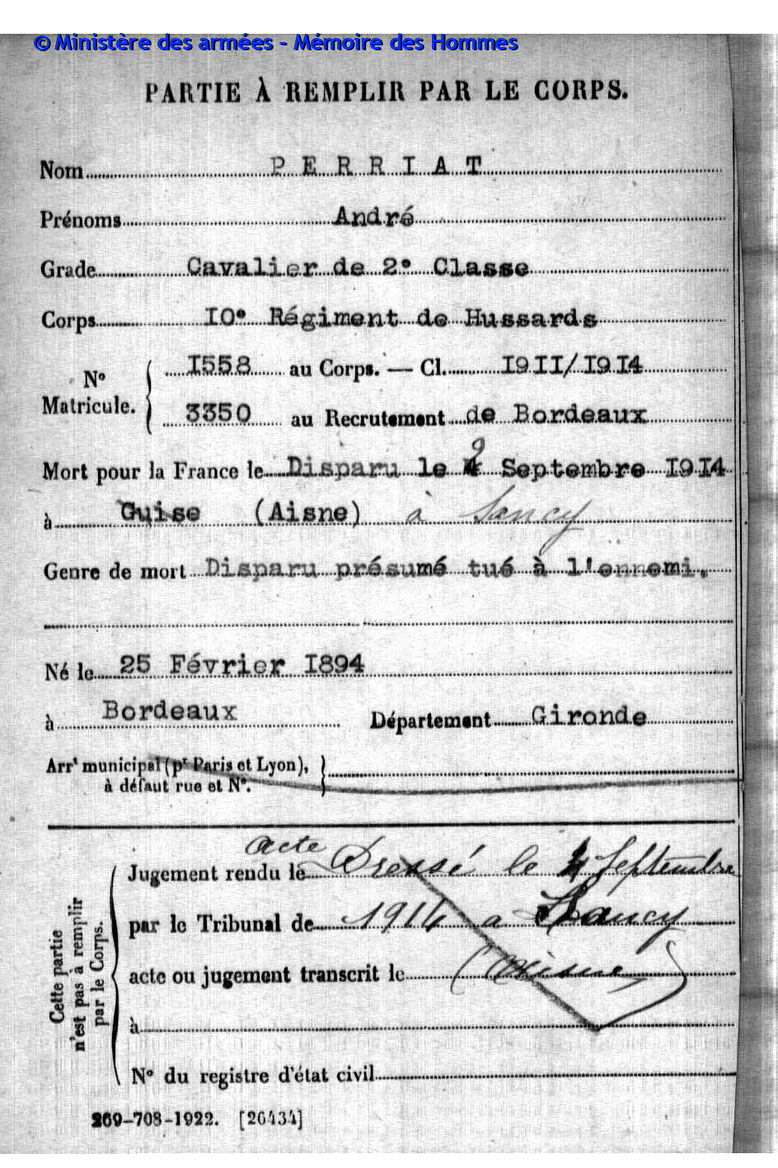 © Ministère des armées - Mémoire des Hommes
PARTIE À REMPLIR PAR LE CORPS.
Nom PERRIAT
Prénoms André
Grade Cavalier de 2e Classe
Corps I0e Régiment de Hussards
N° Matricule. I558 au Corps. — Cl. I9II/I9I4
3350 au Recrutement de Bordeaux
Mort pour la France le Disparu le 2 Septembre I9I4
à Guise (Aisne) à Sancy
Genre de mort Disparu présumé tué à l'ennemi.
Né le 25 Février I894
à Bordeaux Département Gironde
Arrt municipal (pr Paris et Lyon),
à défaut rue et N°.
Cette partie
n'est pas à remplir
par le Corps.
acte
Jugement rendu le Dressé le 4 Septembre
par le Tribunal de 1914 a Sancy
acte ou jugement transcrit le (Aisne)
à
N° du registre d'état civil
269-708-1922. [26434]